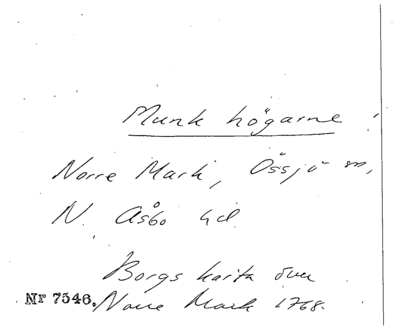 Munk högarne
Norre Mark, Össjö sn,
N. Åsbo hd.
Borgs karta över
Nr 7546. Norre Mark 1768.